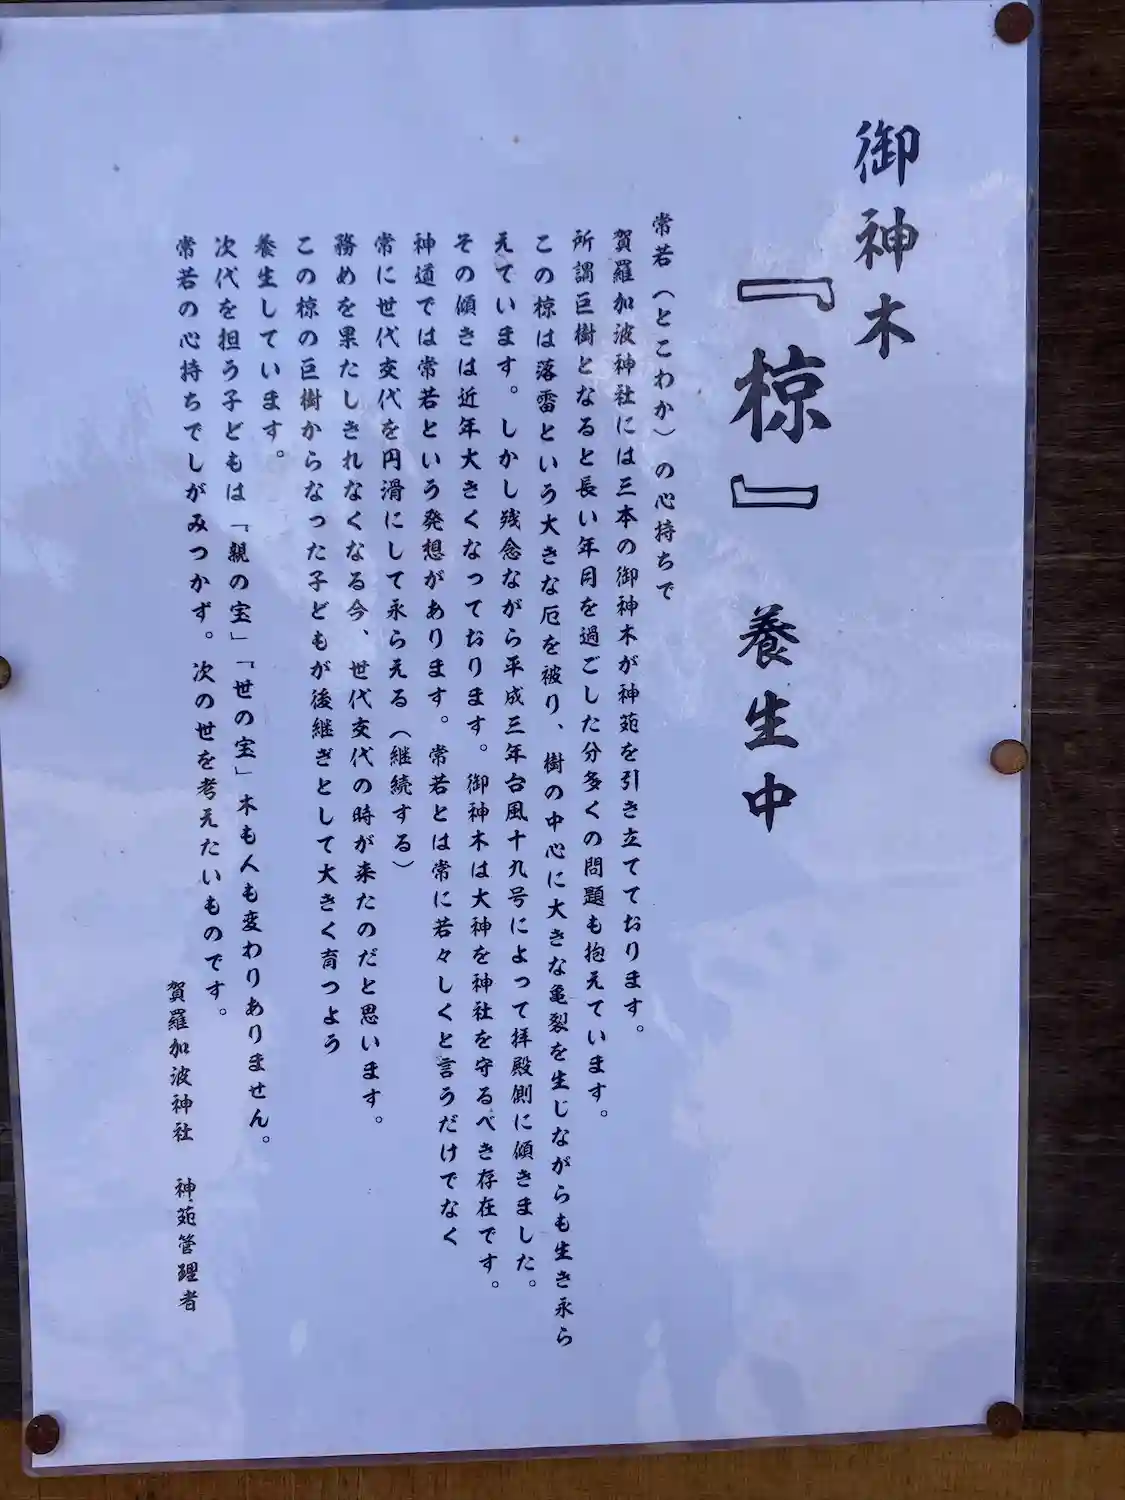 御神木
『椋』 養生中
常若（とこわか）の心持ちで
賀羅加波神社には三本の御神木が神苑を引き立てております。
所謂巨樹となると長い年月を過ごした分多くの問題も抱えています。
この椋は落雷という大きな厄を被り、樹の中心に大きな亀裂を生じながらも生き永ら
えています。しかし残念ながら平成三年台風十九号によって拝殿側に傾きました。
その傾きは近年大きくなっております。御神木は大神を神社を守るべき存在です。
神道では常若という発想があります。常若とは常に若々しくと言うだけでなく
常に世代交代を円滑にして永らえる（継続する）
務めを果たしきれなくなる今、世代交代の時が来たのだと思います。
この椋の巨樹からなった子どもが後継ぎとして大きく育つよう
養生しています。
次代を担う子どもは「親の宝」「世の宝」木も人も変わりありません。
常若の心持ちでしがみつかず。次の世を考えたいものです。
賀羅加波神社 神苑管理者